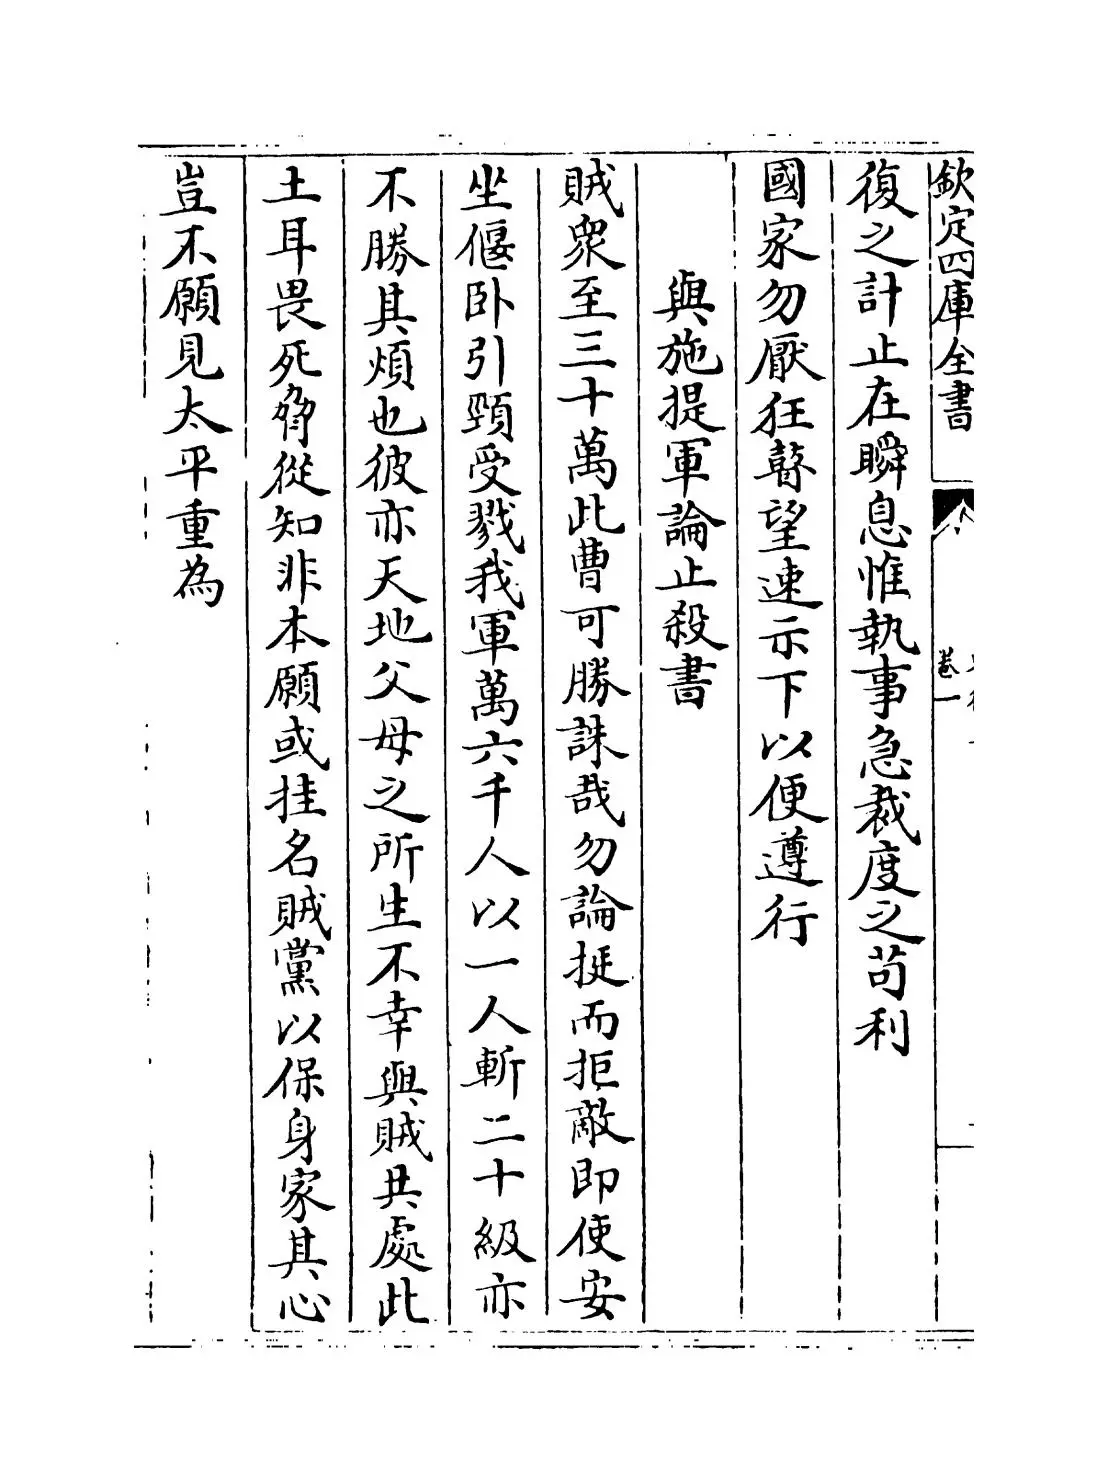 欽定四庫全書
卷一
復之計止在瞬息惟執事急裁度之苟利
國家勿厭狂瞽望速示下以便遵行
與施提軍論止殺書
賊衆至三十萬此曹可勝誅哉勿論挺而拒敵即使安
坐偃卧引頸受戮我軍萬六千人以一人斬二十級亦
不勝其煩也彼亦天地父母之所生不幸與賊共處此
土耳畏死脅從知非本願或挂名賊黨以保身家其心
豈不願見太平重為